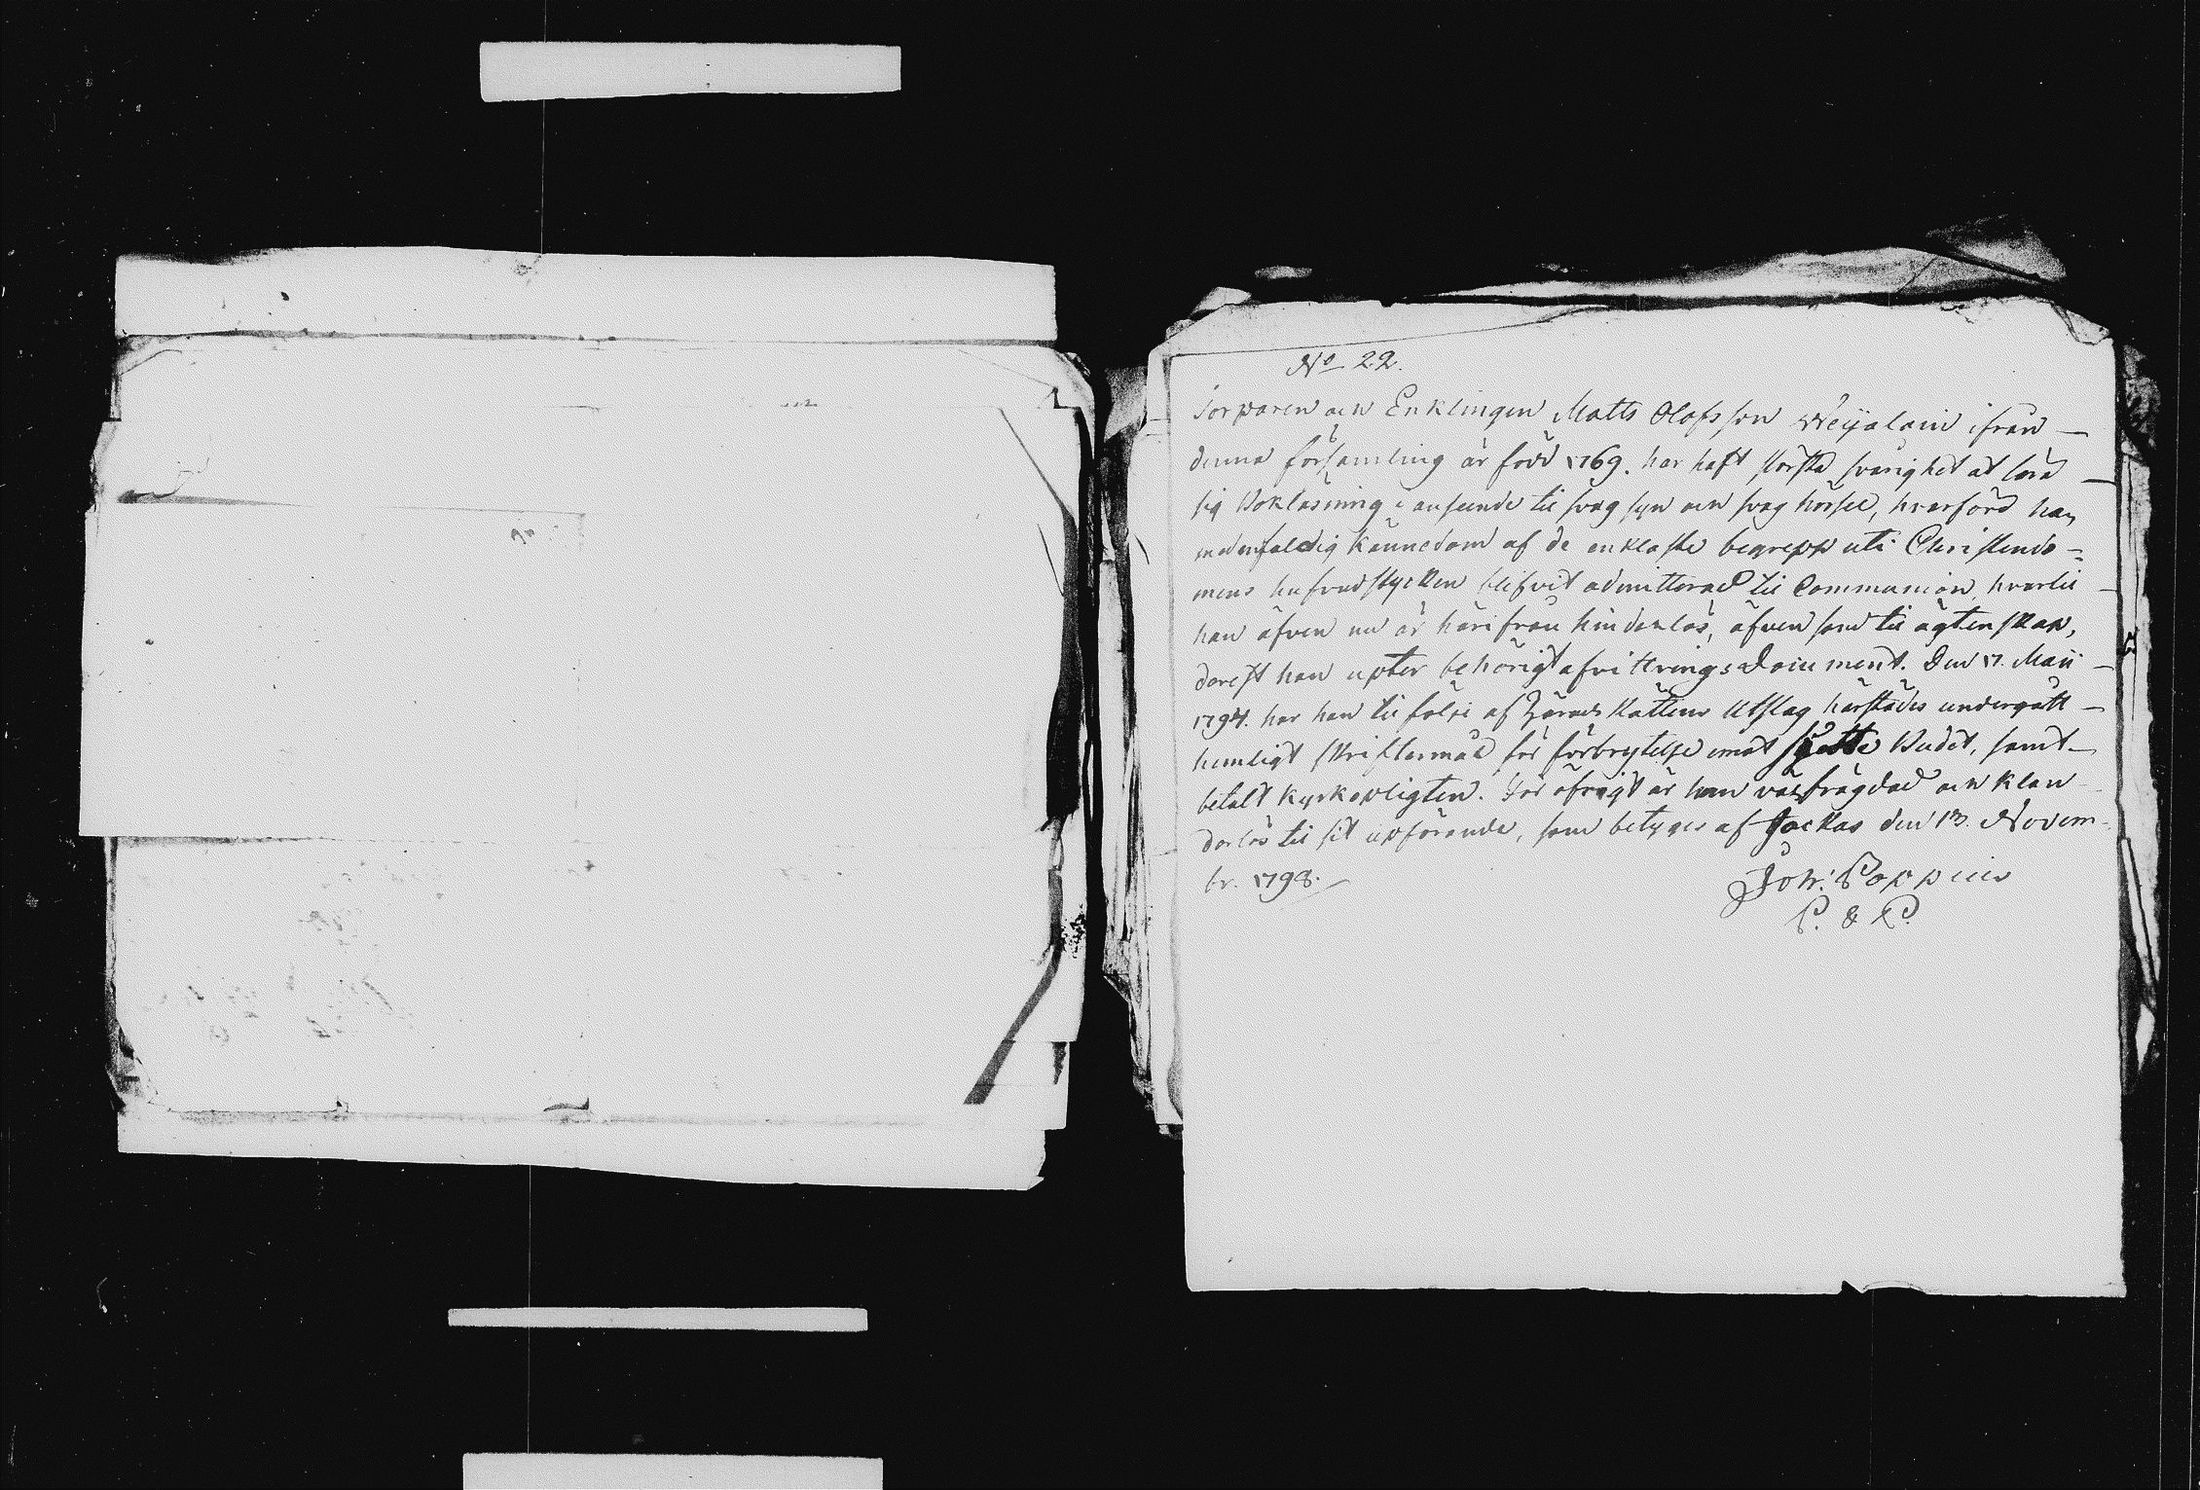 No 22.
Torparen och Enklingen Matts Olofsson Weijalain ifrån
denna församling är född 1769. har haft största svårighet at lära
sig Bokläsning i anseende til svag syn och svag hörsel, hvarföre han
med enfaldig kännedom af de enklaste begrepp uti Christendo=
mens hufvudstycken blifvit admitterad til Communion, hvartil
han äfven nu är härifrån hinderlös, äfven som til ägtenskap,
derest han upter behörigt afvittrings Document. Den 17. Maii
1794. har han til följe af Härads Rättens Utslag härstädes undergått
hemligt skriftermål för förbrytelse emot Sjette Budet, samt
betalt Kyrkopligten. För öfrigt är han välfrägdad och klan
derlös til sit upförande, som betyges af Jockas den 13. Novem-
br. 1798.
Joh: Poppius
P. & P.